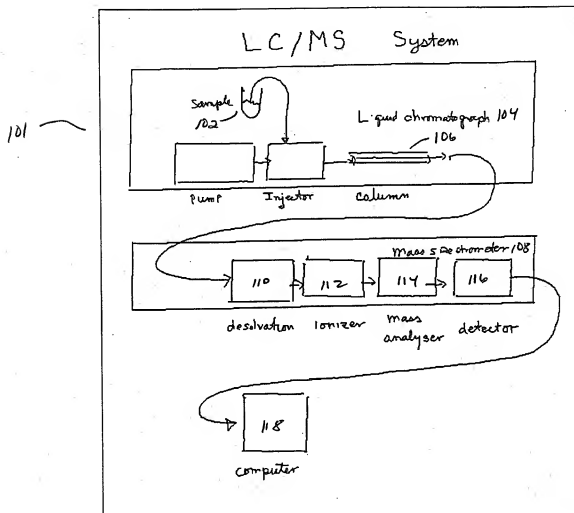 LC/MS System
101
Sample
102
Liquid chromatograph 104
106
pump Injector column
mass spectrometer 108
110 112 114 116
desolvation Ionizer mass analyser detector
118
computer